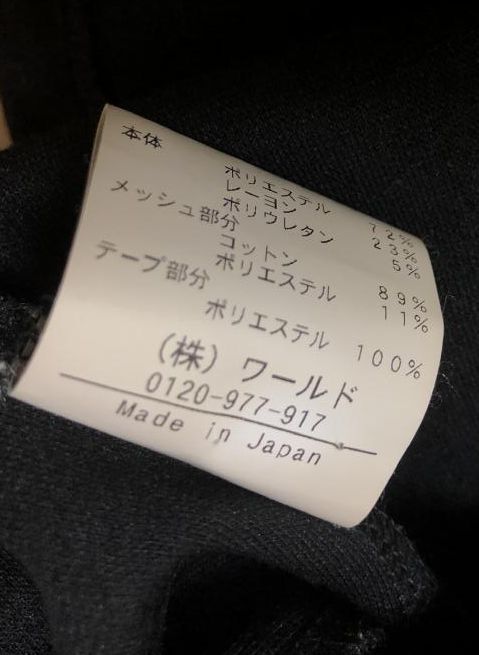 本体
ポリエステル 72%
レーヨン 23%
ポリウレタン 5%
メッシュ部分
コットン 89%
ポリエステル 11%
テープ部分
ポリエステル 100%
(株) ワールド
0120-977-917
Made in Japan